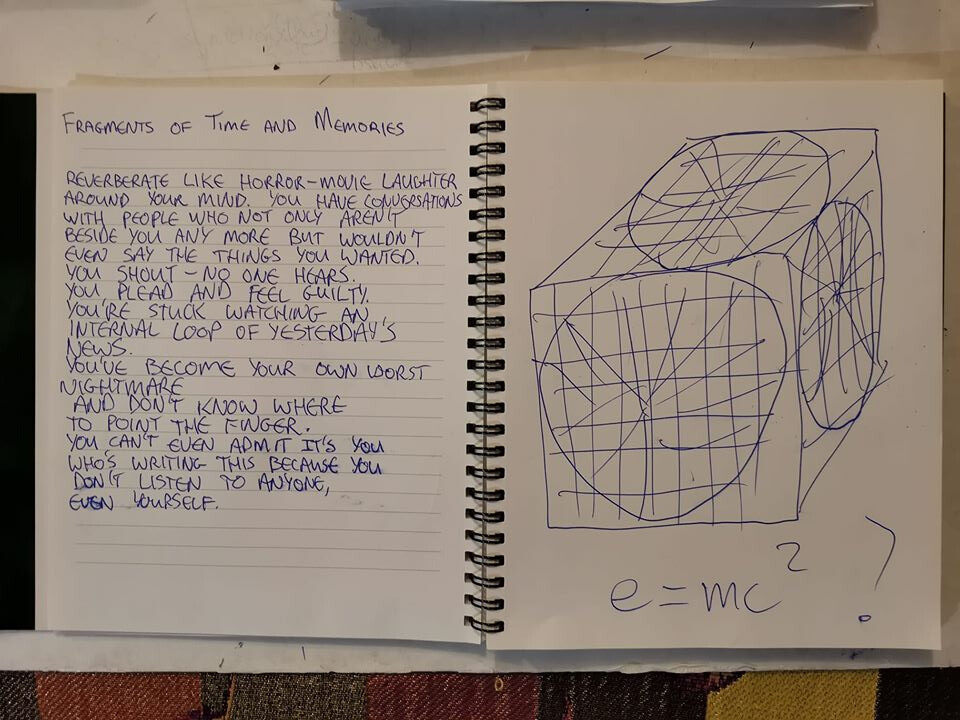 FRAGMENTS OF TIME AND MEMORIES
REVERBERATE LIKE HORROR-MOVIE LAUGHTER
AROUND YOUR MIND. YOU HAVE CONVERSATIONS
WITH PEOPLE WHO NOT ONLY AREN'T
BESIDE YOU ANY MORE BUT WOULDN'T
EVEN SAY THE THINGS YOU WANTED.
YOU SHOUT - NO ONE HEARS.
YOU PLEAD AND FEEL GUILTY.
YOU'RE STUCK WATCHING AN
INTERNAL LOOP OF YESTERDAY'S
NEWS.
YOU'VE BECOME YOUR OWN WORST
NIGHTMARE
AND DON'T KNOW WHERE
TO POINT THE FINGER.
YOU CAN'T EVEN ADMIT IT'S YOU
WHO'S WRITING THIS BECAUSE YOU
DON'T LISTEN TO ANYONE,
EVEN YOURSELF.
e=mc² ?